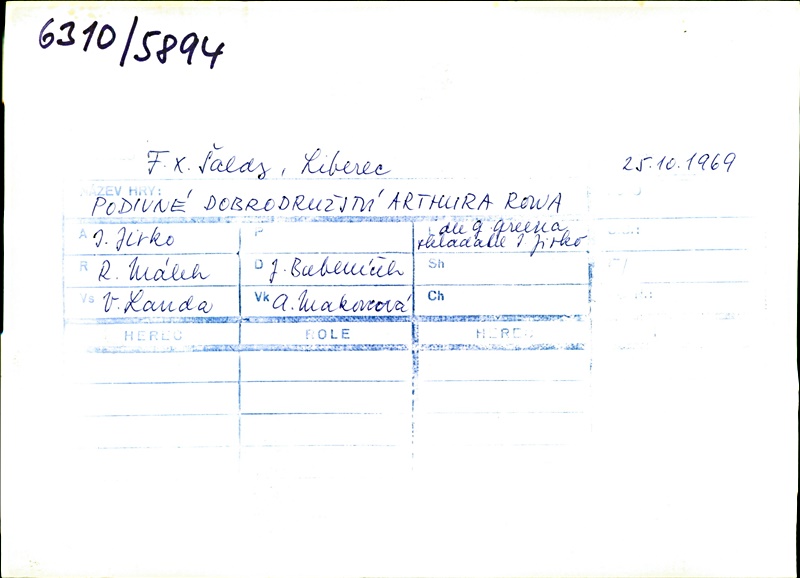 6310/5894
F. X. Šaldy, Liberec 25.10.1969
NÁZEV HRY:
PODIVNÉ DOBRODRUŽSTVÍ ARTHURA ROWA
A I. Jirko P dle G. Greena
I. Jirko
R R. Málek D J. Bubeníček Sh
Vs V. Landa Vk A. Makovcová Ch
HEREC ROLE HEREC